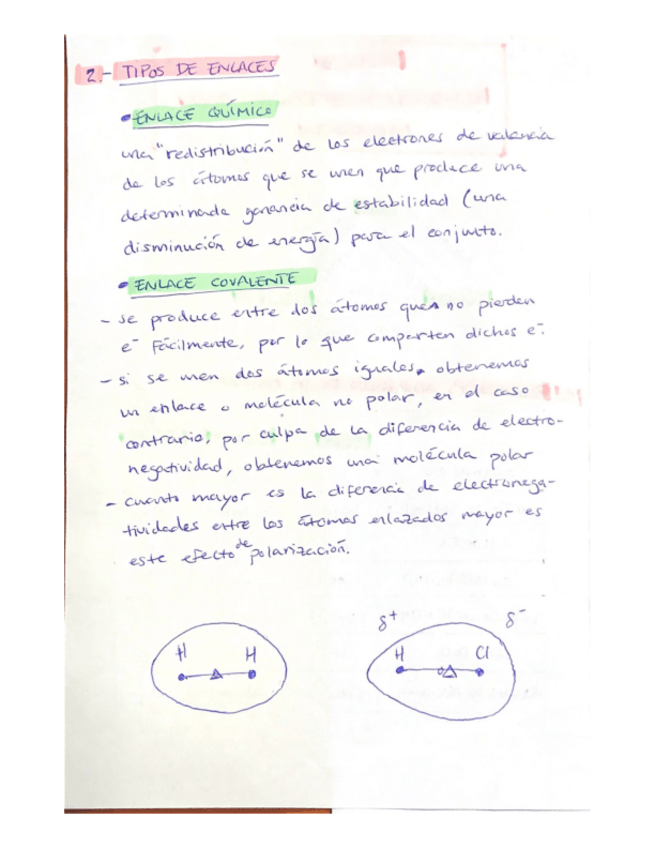 2.- TIPOS DE ENLACES
• ENLACE QUÍMICO
una "redistribución" de los electrones de valencia
de los átomos que se unen que produce una
determinada ganancia de estabilidad (una
disminución de energía) para el conjunto.
• ENLACE COVALENTE
- se produce entre dos átomos que no pierden
e⁻ fácilmente, por lo que comparten dichos e⁻.
- si se unen dos átomos iguales, obtenemos
un enlace o molécula no polar, en el caso
contrario, por culpa de la diferencia de electro-
negatividad, obtenemos una molécula polar
- cuanto mayor es la diferencia de electronega-
tividades entre los átomos enlazados mayor es
este efecto de polarización.
δ⁺ δ⁻
H H H Cl